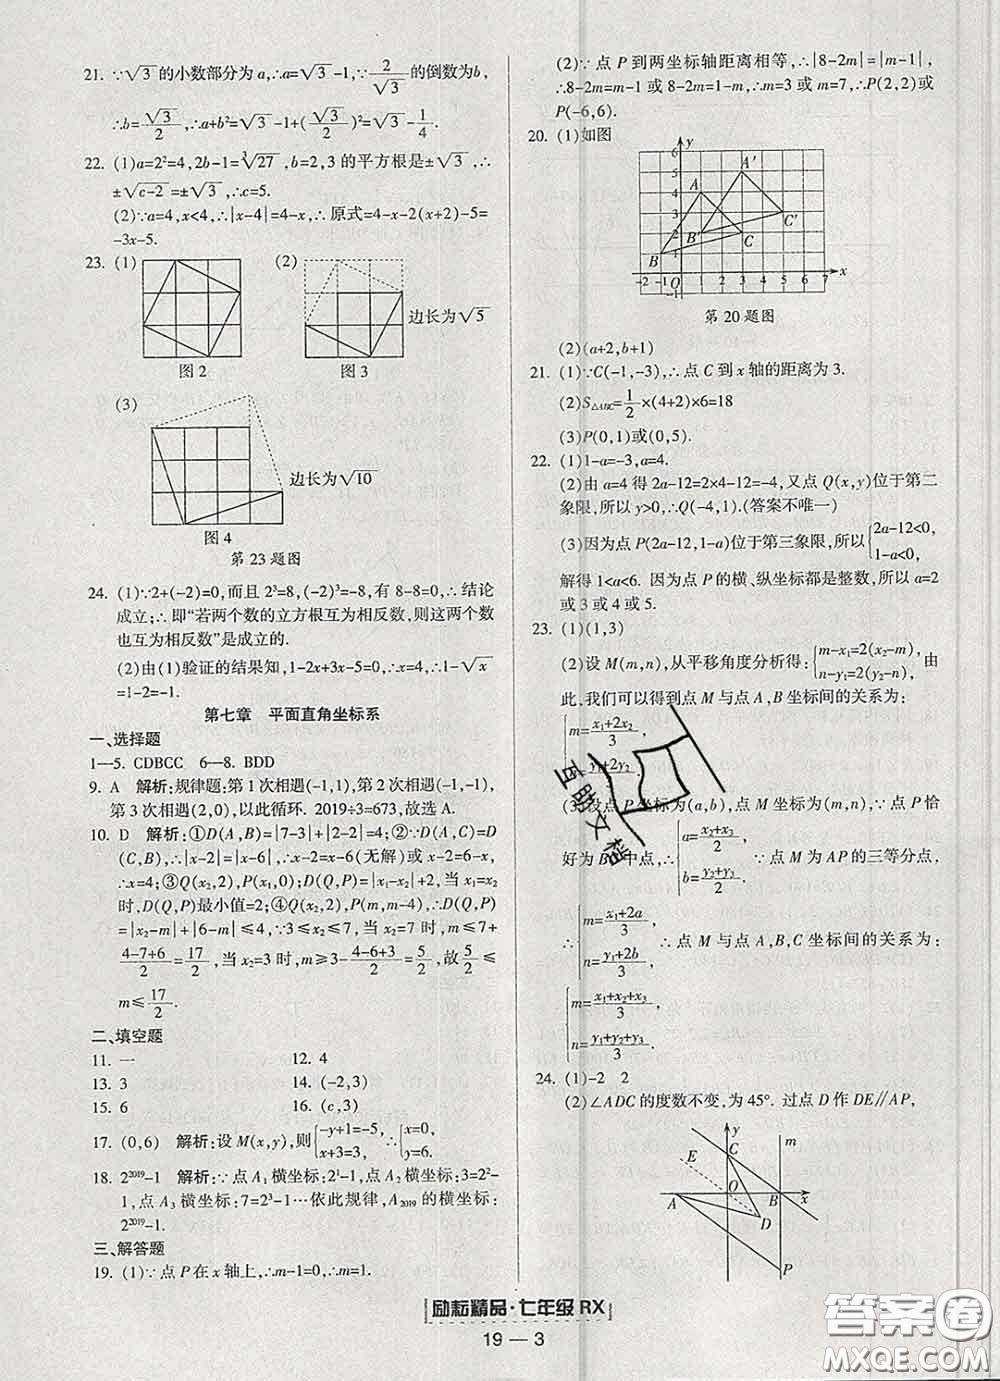 21. ∵√3的小数部分为a,∴a=√3-1,∵2/√3的倒数为b,
∴b=√3/2,∴a+b²=√3-1+(√3/2)²=√3-1/4.
22. (1)a=2²=4,2b-1=³√27,b=2,3的平方根是±√3,∴
±√c-2=±√3,∴c=5.
(2)∵a=4,x<4,∴|x-4|=4-x,∴原式=4-x-2(x+2)-5=
-3x-5.
23. (1)
(2)
边长为√5
图2
图3
(3)
边长为√10
图4
第23题图
24. (1)∵2+(-2)=0,而且2³=8,(-2)³=-8,有8-8=0,∴结论
成立;∴即“若两个数的立方根互为相反数,则这两个数
也互为相反数”是成立的.
(2)由(1)验证的结果知,1-2x+3x-5=0,∴x=4,∴1-√x
=1-2=-1.
第七章 平面直角坐标系
一、选择题
1—5. CDBCC 6—8. BDD
9. A 解析:规律题;第1次相遇(-1,1),第2次相遇(-1,-1),
第3次相遇(2,0),以此循环. 2019÷3=673,故选A.
10. D 解析:①D(A,B)=|7-3|+|2-2|=4;②∵D(A,C)=D
(C,B),∴|x-2|=|x-6|,∴x-2=x-6(无解)或x-2=6-x,
∴x=4;③Q(x₂,2),P(x₁,0);D(Q,P)=|x₁-x₂|+2,当x₁=x₂
时,D(Q,P)最小值=2;④Q(x₂,2),P(m,m-4),∴D(Q,P)
=|x₂-m|+|6-m|≤4,∵3≤x₂≤7,当x₂=7时,m≤7+
(4-7+6)/2=17/2,当x₂=3时,m≥3-(-4-6+3)/2=5/2,故5/2≤
m≤17/2.
二、填空题
11. 一
12. 4
13. 3
14. (-2,3)
15. 6
16. (c,3)
17. (0,6) 解析:设M(x,y),则{-y+1=-5, x+3=3, ∴{x=0, y=6.
18. 2²⁰¹⁹-1 解析:∵点A₁横坐标:2¹-1,点A₂横坐标:3=2²-
1,点A₃横坐标:7=2³-1…依此规律,A₂₀₁₉的横坐标:
2²⁰¹⁹-1.
三、解答题
19. (1)∵点P在x轴上,∴m-1=0,∴m=1.
(2)∵点P到两坐标轴距离相等,∴|8-2m|=|m-1|,
∴8-2m=m-1或8-2m=1-m,∴m=3或m=7,∴P(2,2)或
P(-6,6).
20. (1)如图
y
6
5
4
3
2
1
-2 -1 O 1 2 3 4 5 6 7 x
-1
A' A C' B' C B
第20题图
(2)(a+2,b+1)
21. (1)∵C(-1,-3),∴点C到x轴的距离为3.
(2)S△ABC=1/2×(4+2)×6=18
(3)P(0,1)或(0,5).
22. (1)1-a=-3,a=4.
(2)由a=4得2a-12=2×4-12=-4,又点Q(x,y)位于第二
象限,所以y>0,∴Q(-4,1).(答案不唯一)
(3)因为点P(2a-12,1-a)位于第三象限,所以{2a-12<0, 1-a<0,
解得1<a<6. 因为点P的横、纵坐标都是整数,所以a=2
或3或4或5.
23. (1)(1,3)
(2)设M(m,n),从平移角度分析得:{m-x₁=2(x₂-m), n-y₁=2(y₂-m), 由
此,我们可以得到点M与点A,B坐标间的关系为:
{m=(x₁+2x₂)/3,
y₁+2y₂
(3)设点P坐标为(a,b),点M坐标为(m,n),∵点P恰
好为BC中点,∴{a=(x₂+x₃)/2, b=(y₂+y₃)/2. ∵点M为AP的三等分点,
∴{m=(x₁+2a)/3, n=(y₁+2b)/3. ∴点M与点A,B,C坐标间的关系为:
{m=(x₁+x₂+x₃)/3, n=(y₁+y₂+y₃)/3.
24. (1)-2 2
(2)∠ADC的度数不变,为45°. 过点D作DE∥AP,
y m E C O A B x D P
互助文档
励耘精品·七年级 RX
19—3
答案圈
MXQE.COM